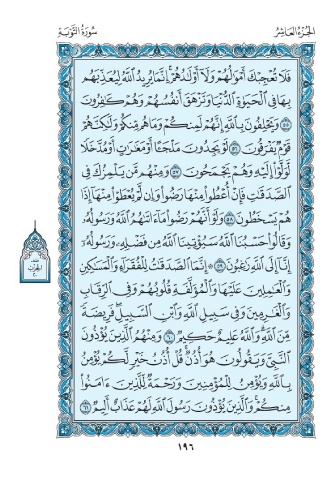 الجزء العاشر
سورة التوبة
فَلَا تُعْجِبْكَ أَمْوَٰلُهُمْ وَلَآ أَوْلَٰدُهُمْ ۚ إِنَّمَا يُرِيدُ ٱللَّهُ لِيُعَذِّبَهُم
بِهَا فِى ٱلْحَيَوٰةِ ٱلدُّنْيَا وَتَزْهَقَ أَنفُسُهُمْ وَهُمْ كَٰفِرُونَ
٥٥ وَيَحْلِفُونَ بِٱللَّهِ إِنَّهُمْ لَمِنكُمْ وَمَا هُم مِّنكُمْ وَلَٰكِنَّهُمْ
قَوْمٌ يَفْرَقُونَ ٥٦ لَوْ يَجِدُونَ مَلْجَـًٔا أَوْ مَغَٰرَٰتٍ أَوْ مُدَّخَلًا
لَّوَلَّوْا۟ إِلَيْهِ وَهُمْ يَجْمَحُونَ ٥٧ وَمِنْهُم مَّن يَلْمِزُكَ فِى
ٱلصَّدَقَٰتِ فَإِنْ أُعْطُوا۟ مِنْهَا رَضُوا۟ وَإِن لَّمْ يُعْطَوْا۟ مِنْهَآ إِذَا
هُمْ يَسْخَطُونَ ٥٨ وَلَوْ أَنَّهُمْ رَضُوا۟ مَآ ءَاتَىٰهُمُ ٱللَّهُ وَرَسُولُهُۥ
وَقَالُوا۟ حَسْبُنَا ٱللَّهُ سَيُؤْتِينَا ٱللَّهُ مِن فَضْلِهِۦ وَرَسُولُهُۥٓ
إِنَّآ إِلَى ٱللَّهِ رَٰغِبُونَ ٥٩ ۞ إِنَّمَا ٱلصَّدَقَٰتُ لِلْفُقَرَآءِ وَٱلْمَسَٰكِينِ
وَٱلْعَٰمِلِينَ عَلَيْهَا وَٱلْمُؤَلَّفَةِ قُلُوبُهُمْ وَفِى ٱلرِّقَابِ
وَٱلْغَٰرِمِينَ وَفِى سَبِيلِ ٱللَّهِ وَٱبْنِ ٱلسَّبِيلِ ۖ فَرِيضَةً
مِّنَ ٱللَّهِ ۗ وَٱللَّهُ عَلِيمٌ حَكِيمٌ ٦٠ وَمِنْهُمُ ٱلَّذِينَ يُؤْذُونَ
ٱلنَّبِىَّ وَيَقُولُونَ هُوَ أُذُنٌ ۚ قُلْ أُذُنُ خَيْرٍ لَّكُمْ يُؤْمِنُ
بِٱللَّهِ وَيُؤْمِنُ لِلْمُؤْمِنِينَ وَرَحْمَةٌ لِّلَّذِينَ ءَامَنُوا۟
مِنكُمْ ۚ وَٱلَّذِينَ يُؤْذُونَ رَسُولَ ٱللَّهِ لَهُمْ عَذَابٌ أَلِيمٌ ٦١
١٩٦